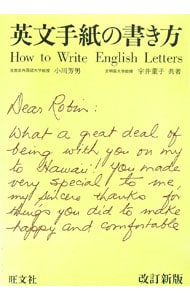 英文手紙の書き方
How to Write English Letters
小川芳男
宇井菫子 共著
Dear Robin:
What a great deal of
being with you on my
to Hawaii! You made
very special to me,
my sincere thanks for
things you did to make
happy and comfortable
旺文社
改訂新版